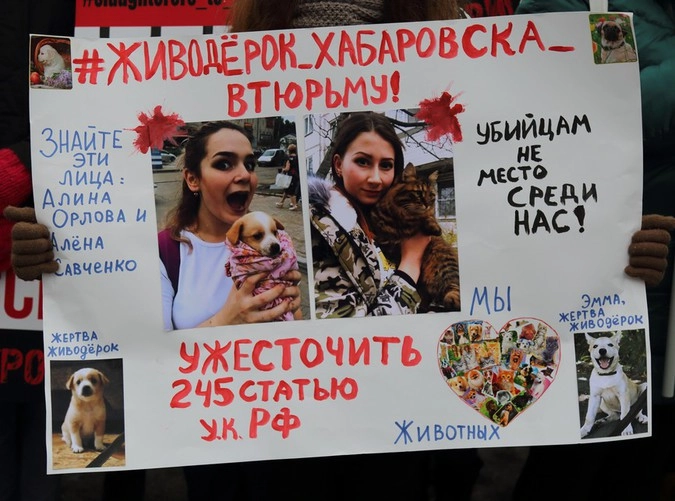 #slaughterers_to_
#ЖИВОДЁРОК_ХАБАРОВСКА_
В ТЮРЬМУ!
ЗНАЙТЕ
ЭТИ
ЛИЦА:
АЛИНА
ОРЛОВА И
АЛЁНА
САВЧЕНКО
УБИЙЦАМ
НЕ
МЕСТО
СРЕДИ
НАС!
ЖЕРТВА
ЖИВОДЁРОК
УЖЕСТОЧИТЬ
245 СТАТЬЮ
У.К. РФ
МЫ
ЖИВОТНЫХ
ЭММА,
ЖЕРТВА
ЖИВОДЁРОК